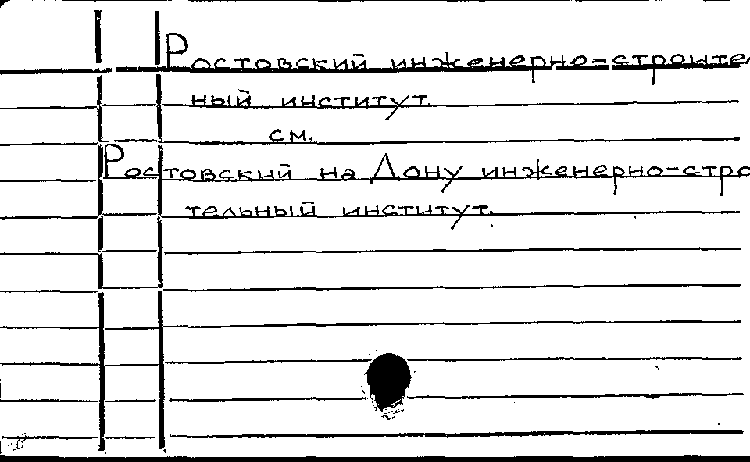 Ростовский инженерно-строите
ный институт
см.
Ростовский на Дону инженерно-стро
тельный институт.